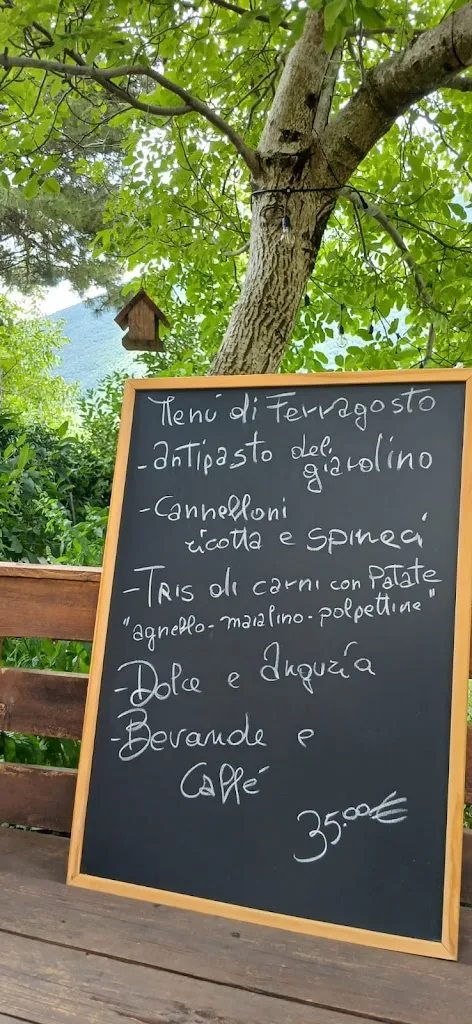 Menù di Ferragosto
-antipasto del giardino
-Cannelloni
ricotta e spinaci
-Tris di carni con Patate
"agnello-maialino-polpettine"
-Dolce e Anguria
-Bevande e
Caffé
35.00€